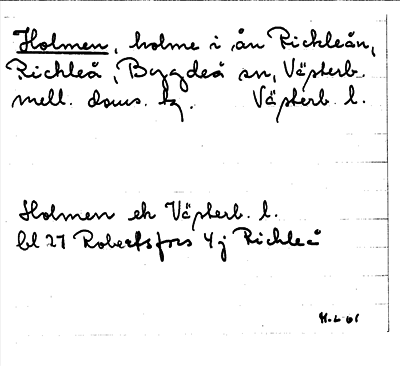 Holmen, holme i ån Rickleån,
Rickleå, Bygdeå sn, Västerb.
mell. doms. tg. Västerb. l.
Holmen ek Västerb. l.
bl 27 Robertsfors 4j Rickleå